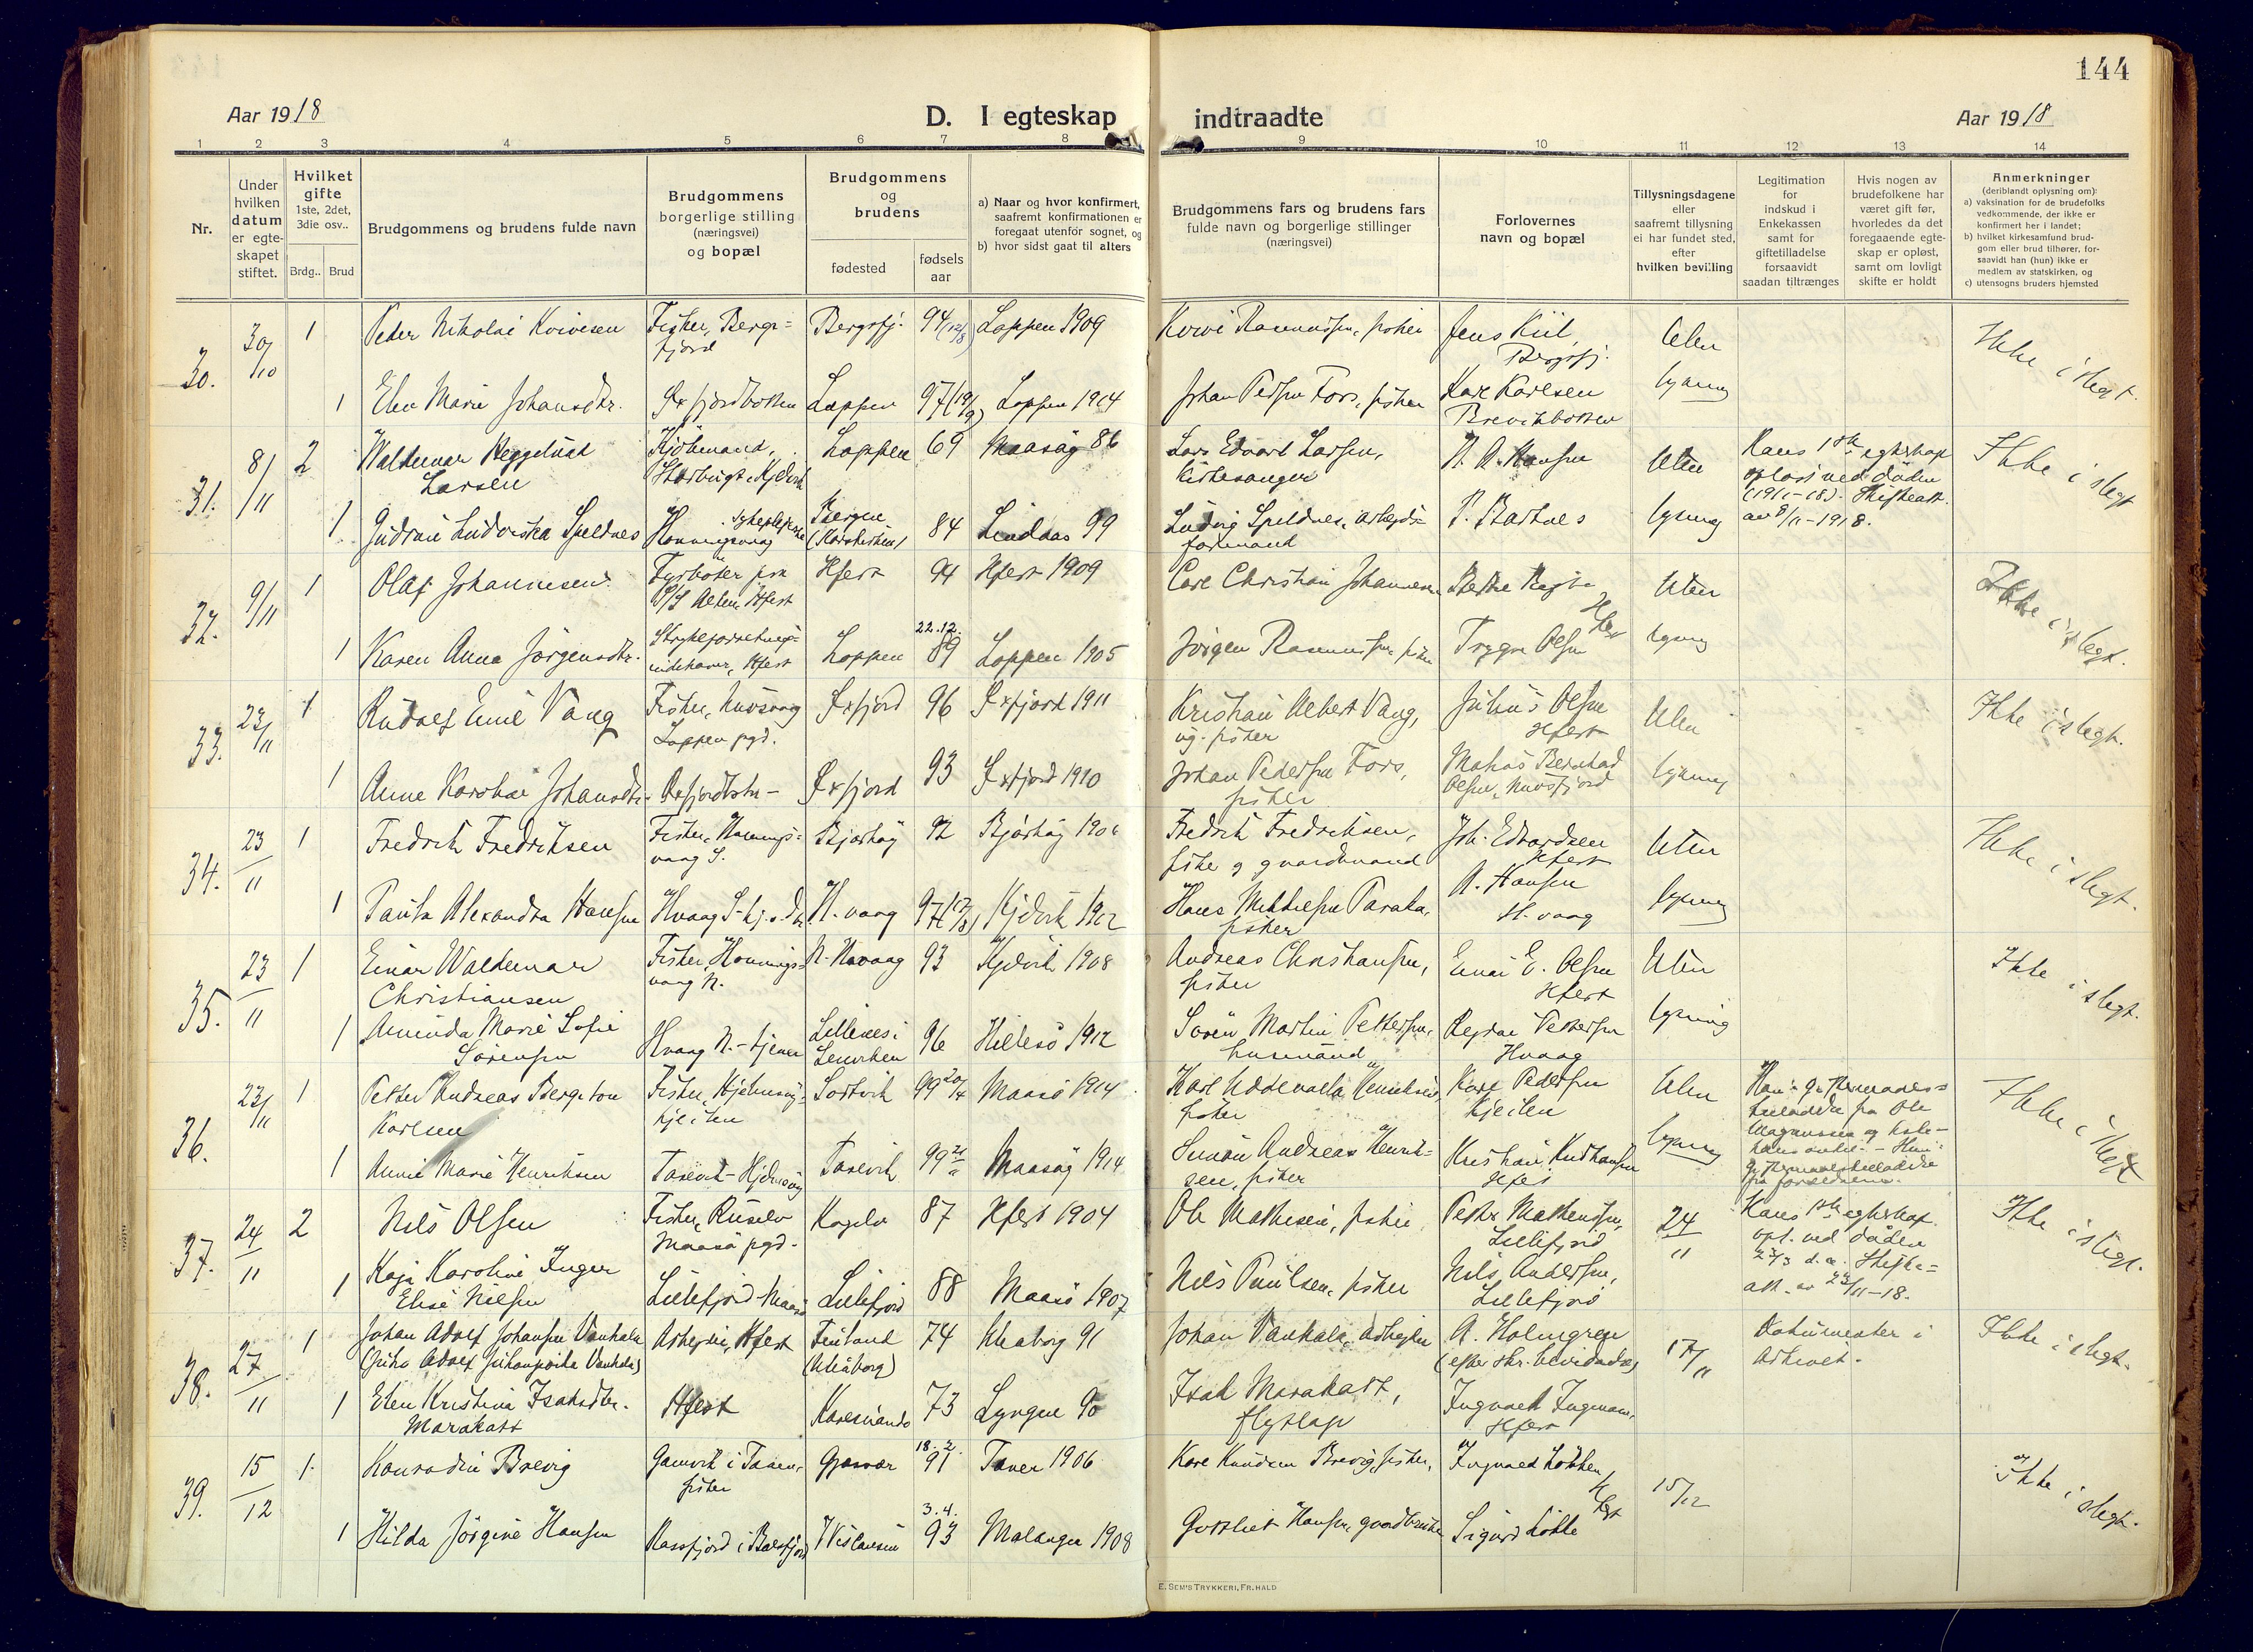 144
Aar 1918
D. I egteskap indtraadte
Aar 1918
1 2 3 4 5 6 7 8 9 10 11 12 13 14
Nr.
Under hvilken datum er egte-skapet stiftet.
Hvilket gifte
1ste, 2det, 3die osv..
Brdg.. Brud
Brudgommens og brudens fulde navn
Brudgommens borgerlige stilling (næringsvei) og bopæl
Brudgommens og brudens
fødested
fødsels aar
a) Naar og hvor konfirmert, saafremt konfirmationen er foregaat utenfor sognet, og
b) hvor sidst gaat til alters
Brudgommens fars og brudens fars fulde navn og borgerlige stillinger (næringsvei)
Forlovernes navn og bopæl
Tillysningsdagene eller saafremt tillysning ei har fundet sted, efter hvilken bevilling
Legitimation for indskud i Enkekassen samt for giftetilladelse forsaavidt saadan tiltrænges
Hvis nogen av brudefolkene har været gift før, hvorledes da det foregaaende egte-skap er opløst, samt om lovligt skifte er holdt
Anmerkninger
(deriblandt oplysning om):
a) vaksination for de brudefolks vedkommende, der ikke er konfirmert her i landet;
b) hvilket kirkesamfund brud-gom eller brud tilhører, for-saavidt han (hun) ikke er medlem av statskirken, og
c) utensogns bruders hjemsted
30. 30/10 1 Peder Nikolai Kvivesen Fisker, Bergs=fjord Bergsfj. 94 (12/8) Loppen 1909 Kvive Rasmussen, fisker Jens Kiil, Bergsfj. Uten Ikke i slegt.
1 Elen Marie Johansdtr. Øxfjordbotten Loppen 97 (19/9) Loppen 1914 Johan Peders Fors, fisker Karl Karlsen Brevikbotten lysning
31. 8/11 2 Waldemar Heggelund Larsen Kjöbmand, Loppen 69 Maasöy 86 Lars Edvart Larsen, Kirkesanger H. A. Hansen Uten Hans 1ste egteskap opløst ved döden (19/1-18). Skifteatt. av 8/11-1918. Ikke i slegt
1 Gudrun Ludviska Speldnes Honningsvaag Bergen 84 Lindaas 99 Ludvig Speldnes, arbeids=formand P. Bastnes lysning
32. 9/11 1 Olaf Johannesen Fyrböter paa D/S Alten, Hfest Hfest 94 Hfest 1909 Carl Christian Johannesen Uten Ikke i slegt.
1 Karen Anna Jörgensdtr. Hfest Loppen 22.12. 89 Loppen 1905 Jörgen Rasmussen, fisker Trygve Olsen Hfest lysning
33. 23/11 1 Rudolf Emil Vang Fisker, Nuvsvaag Loppen pgd. Øxfjord 96 Øxfjord 1911 Kristian Albert Vang, fisker Julius Olsen Hfest Uten Ikke i slegt.
1 Anne Karoline Johansdtr. Øxfjord 93 Øxfjord 1910 Johan Pedersen Fors, fisker Matias Bernhard Olsen, Nuvsfjord lysning
34. 23/11 1 Fredrik Fredriksen Fisker, Honnings=vaag S. Bjarköy 92 Bjarköy 190 Fredrik Fredriksen, fisker og gaardmand Joh. Edvardsen Hfest Uten Ikke i slegt.
1 Paula Alexandra Hansen H.vaag 97 Kjelvik 1912 Hans Mikkelsen Paraka, fisker A. Hansen H.vaag lysning
35. 23/11 1 Einar Waldemar Christiansen Fisker, Honnings=vaag N. N. Hvaag 93 Kjelvik 1908 Andreas Christiansen, fisker Einar E. Olsen Hfest Uten Ikke i slegt.
1 Aminda Marie Sofie Sørensen Hvaag N. - tjener Lillenes i Lenviken 96 Hillesö 1912 Sören Martin Pettersen, husmand Reidar Pettersen Hvaag lysning
36. 23/11 1 Petter Andreas Bergeton Karlsen Fisker, Hjelmsöy, Kjeilen Sortvik 99 20/4 Maasö 1914 Karl Uddevalla Henriksen, fisker Karl Pedersen Kjeilen Uten Ikke i slegt
1 Anna Marie Henriksen Tarevik - Hjelmsöy Tarevik 99 Maasöy 1914 Simon Andreas Henrik=sen, fisker Kristian Hfest lysning
37. 24/11 2 Nils Olsen Fisker, Ruselv Maasö pgd. Kogelv 87 Hfest 1904 Ole Mathisen, fisker Petter Mathisen, Lillefjord 24/11 Hans 1ste egteskap opl. ved döden 23/3 d.a. Skifte=att. av 23/11-18. Ikke i slegt.
1 Kaja Karoline Inger Elise Nilsen Lillefjord Maasö Lillefjord 88 Maasö 1907 Nils Paulsen, fisker Nils Andersen, Lillefjord
38. 27/11 1 Johan Adolf Johansen Vanhala (Juho Adolf Juhonpoika Vanhala) Arbeider, Hfest Finland (Uleåborg) 74 Uleaborg 91 Johan Vanhala, arbeider A. Holmgren 17/11 Dokumenter i Arkivet. Ikke i slegt.
1 Elen Kristina Isaksdtr. Marakatt Hfest Karesuando 73 Lyngen 90 Isak Marakatt, flytlap Ingvald Hfest
39. 15/12 1 Konradin Brevig Gamvik i Tanen, fisker Gjesvær 18.2. 91 Tanen 1906 Karl Knudsen Brevig, fisker, Ingvald Lökken, Hfest 15/12 Ikke i slegt.
1 Hilda Jörgine Hansen i Balsfjord 3.4. 93 Malangen 1908 Gotthilf Hansen, gaardbruker Sigurd Lökke
E. SEM'S TRYKKERI, FR. HALD